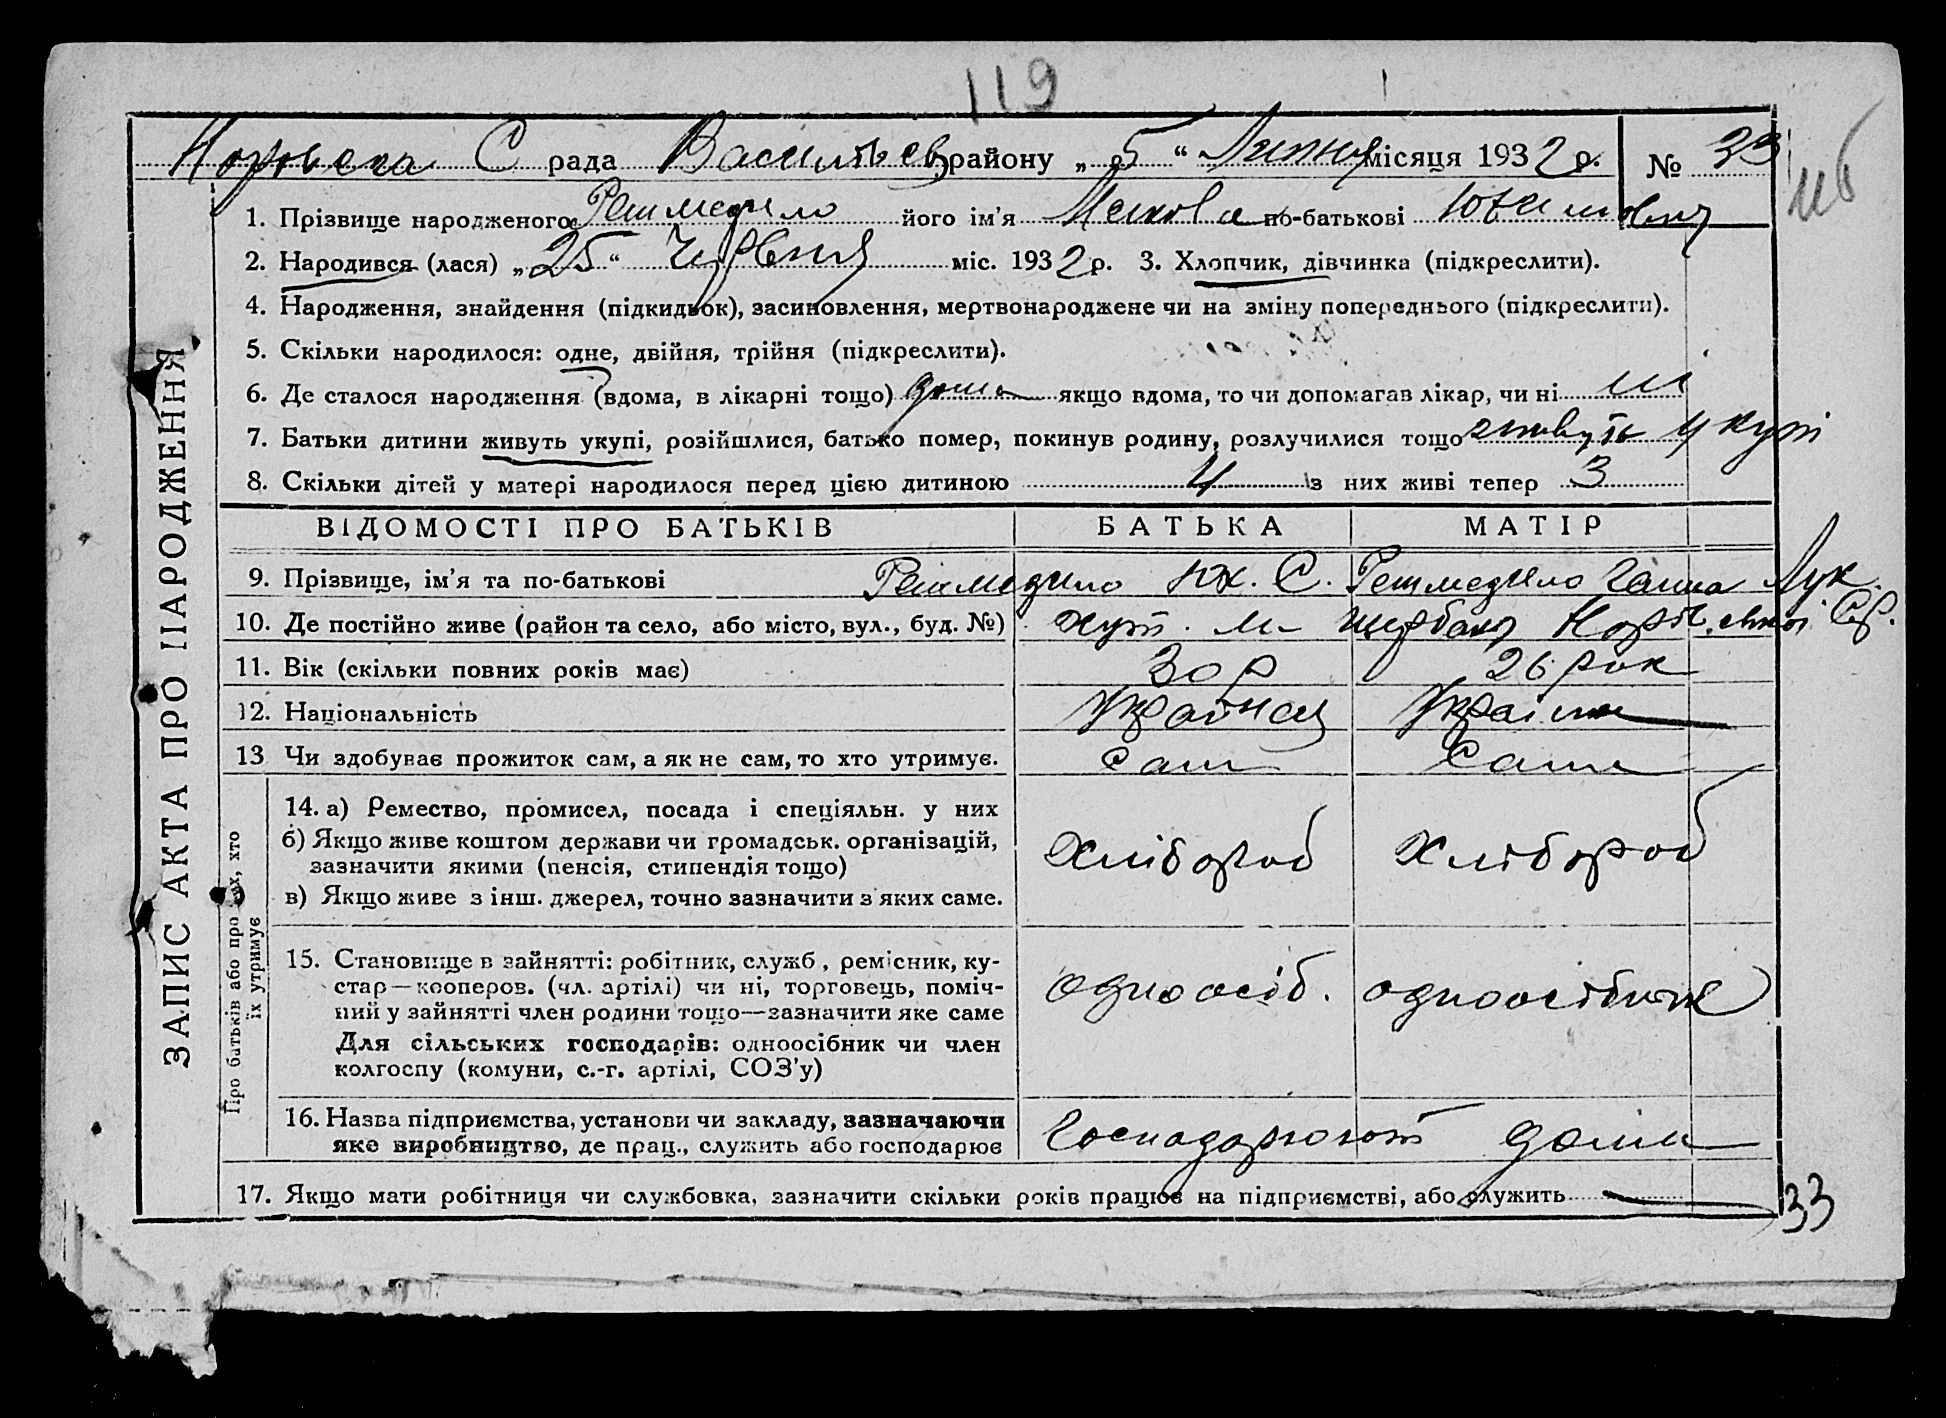 119
С рада Васильев району „ 5 “ Липня місяця 1932 р. № 33
116
1. Прізвище народженого Решмедило його ім'я по-батькові
2. Народився (лася) „ 25 “ Червня міс. 1932 р. 3. Хлопчик, дівчинка (підкреслити).
4. Народження, знайдення (підкидьок), засиновлення, мертвонароджене чи на зміну попереднього (підкреслити).
5. Скільки народилося: одне, двійня, трійня (підкреслити).
6. Де сталося народження (вдома, в лікарні тощо) дома якщо вдома, то чи допомагав лікар, чи ні ні
7. Батьки дитини живуть укупі, розійшлися, батько помер, покинув родину, розлучилися тощо живуть укупі
8. Скільки дітей у матері народилося перед цією дитиною 4 з них живі тепер 3
ВІДОМОСТІ ПРО БАТЬКІВ БАТЬКА МАТІР
9. Прізвище, ім'я та по-батькові Решмедило С. Решмедило Ганна Лук.
10. Де постійно живе (район та село, або місто, вул., буд. №) хут. М-
11. Вік (скільки повних років має) 30 р 26 рок
12. Національність
13 Чи здобуває прожиток сам, а як не сам, то хто утримує. сам сама
14. а) Ремество, промисел, посада і спеціяльн. у них
б) Якщо живе коштом держави чи громадськ. організацій,
зазначити якими (пенсія, стипендія тощо)
в) Якщо живе з інш. джерел, точно зазначити з яких саме.
хлібороб хлібороб
15. Становище в зайнятті: робітник, служб., ремісник, ку-
стар—кооперов. (чл. артілі) чи ні, торговець, поміч-
ний у зайнятті член родини тощо—зазначити яке саме
Для сільських господарів: одноосібник чи член
колгоспу (комуни, с.-г. артілі, СОЗ'у)
одноосіб. одноосібник
16. Назва підприємства, установи чи закладу, зазначаючи
яке виробництво, де прац., служить або господарює
господарюют дома
17. Якщо мати робітниця чи службовка, зазначити скільки років працює на підприємстві, або служить
33
ЗАПИС АКТА ПРО НАРОДЖЕННЯ
Про батьків або про них, хто
їх утримує